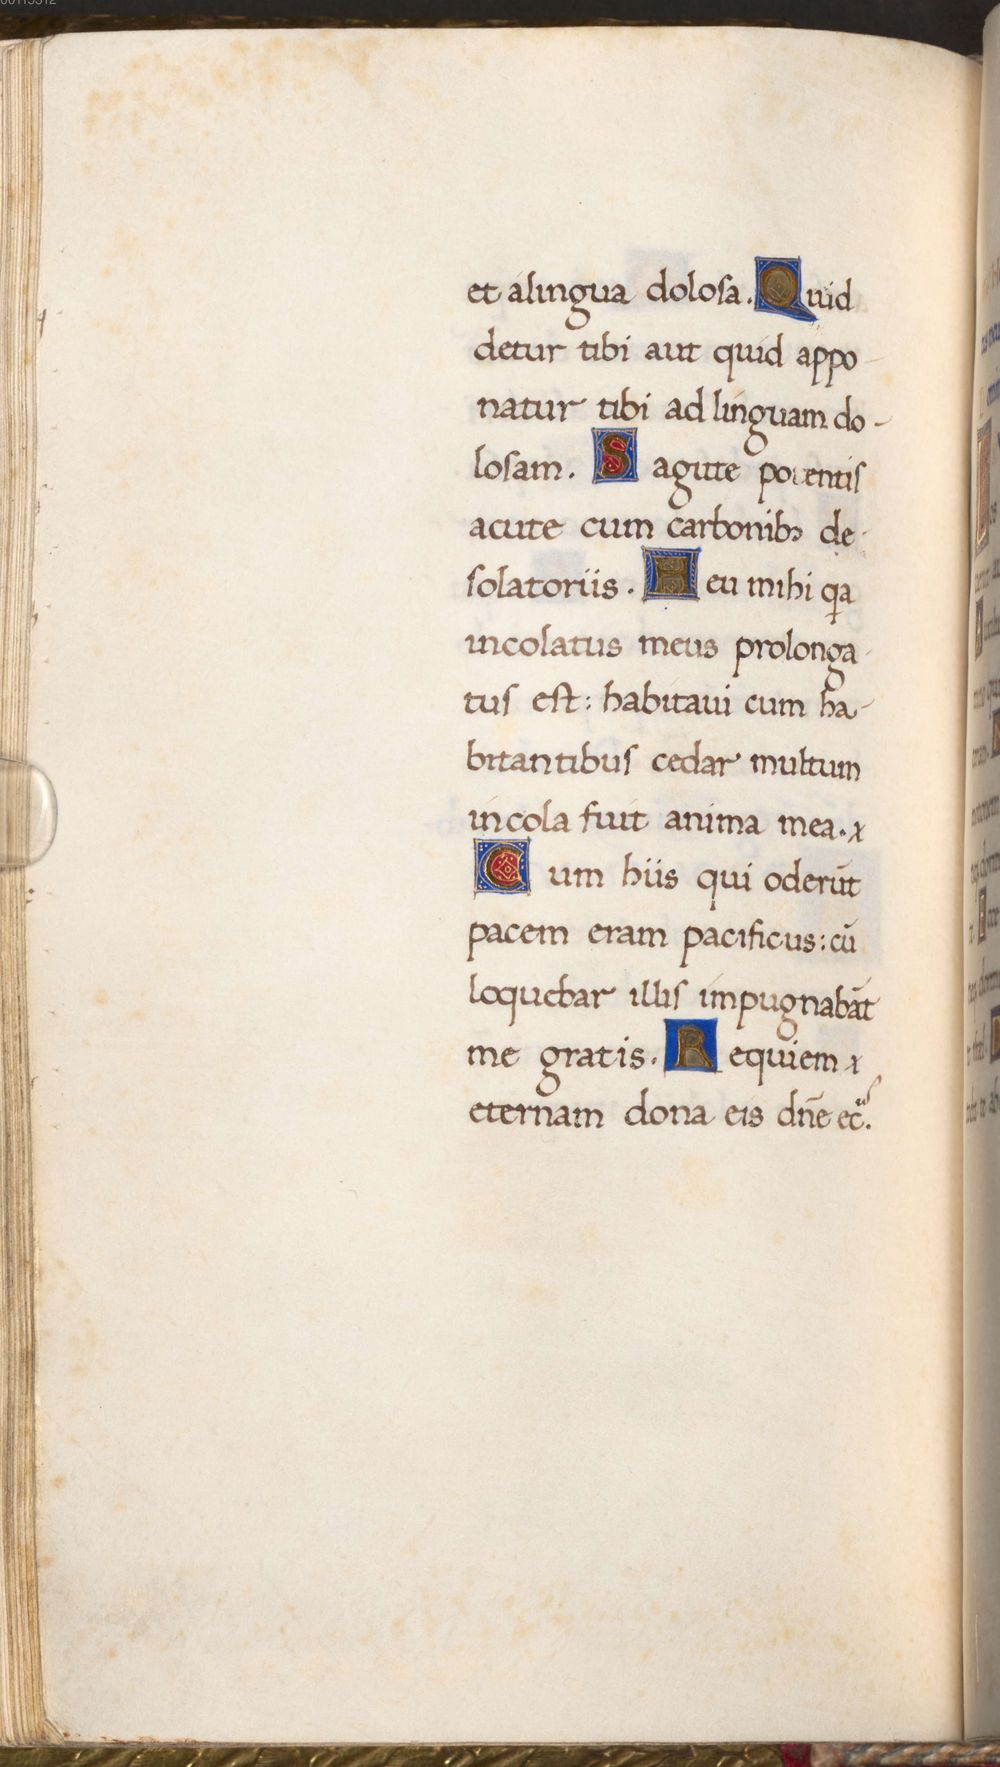 et alingua dolosa. Quid
detur tibi aut quid appo
natur tibi ad linguam do-
losam. Sagitte potentis
acute cum carbonibꝫ de
solatoriis. Heu mihi qa
incolatus meus prolonga
tus est: habitaui cum ha
bitantibus cedar multum
incola fuit anima mea. x
Cum hiis qui oderūt
pacem eram pacificus: cū
loquebar illis impugnabāt
me gratis. Requiem x
eternam dona eis dn̄e ec̄.